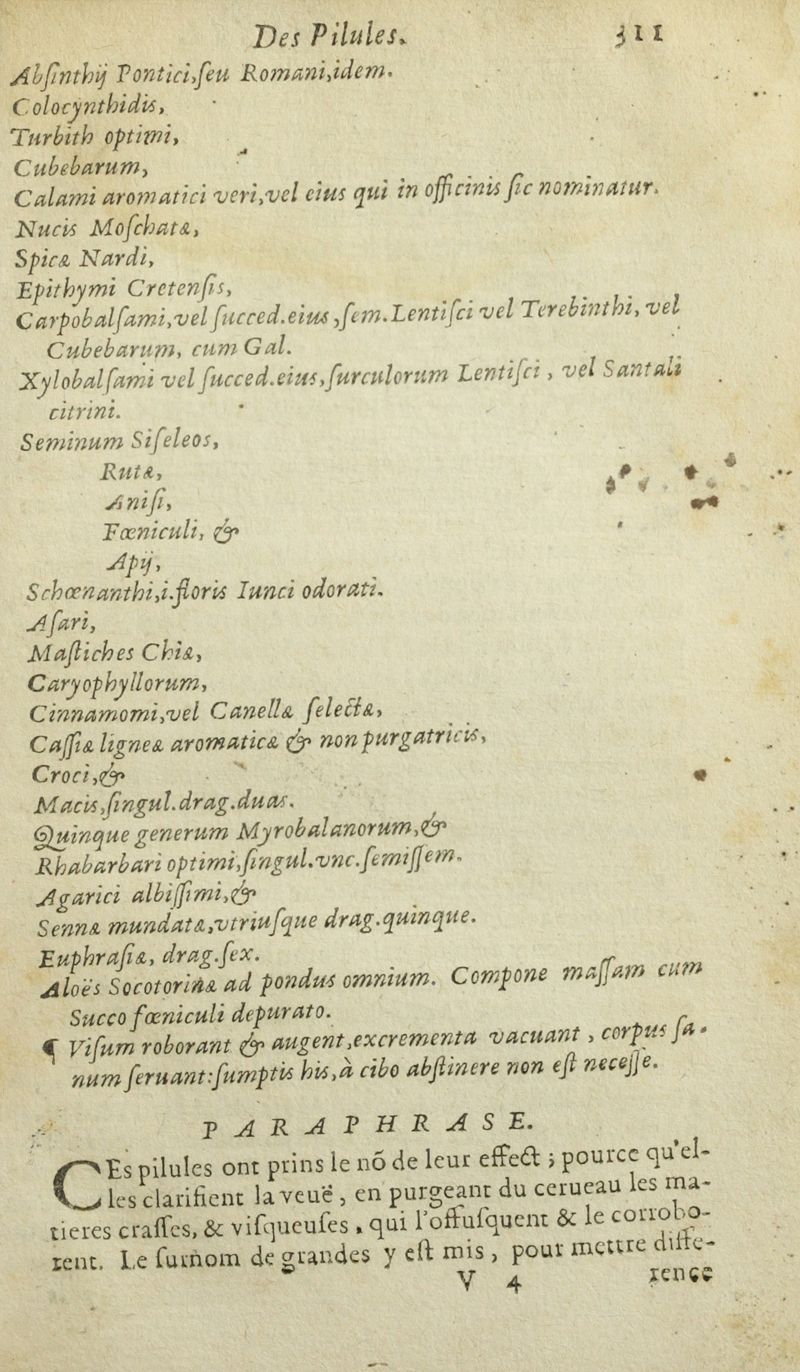 Des Pilules. 311
Abſinthij Pontici,ſeu Romani,idem.
Colocynthidis,
Turbith optimi,
Cubebarum,
Calami aromatici veri,vel eius qui in officinis ſic nominatur.
Nucis Moſchatæ,
Spicæ Nardi,
Epithymi Cretenſis,
Carpobalſami,vel ſucced.eius ,ſem.Lentiſci vel Terebinthi, vel
Cubebarum, cum Gal.
Xylobalſami vel ſucced.eius,ſurculorum Lentiſci , vel Santali
citrini.
Seminum Siſeleos,
Rutæ,
Aniſi,
Fœniculi, &
Apij,
Schœnanthi,i.floris Iunci odorati.
Aſari,
Maſtiches Chiæ,
Caryophyllorum,
Cinnamomi,vel Canellæ ſelectæ,
Caſſiæ ligneæ aromaticæ & non purgatricis,
Croci,&
Macis,ſingul.drag.duas.
Quinque generum Myrobalanorum,&
Rhabarbari optimi,ſingul.vnc.ſemiſſem.
Agarici albiſſimi,&
Sennæ mundatæ,vtriuſque drag.quinque.
Euphraſiæ, drag.ſex.
Aloës Socotorinæ ad pondus omnium. Compone maſſam cum
Succo fœniculi depurato.
¶ Viſum roborant & augent,excrementa vacuant , corpus ſa-
num ſeruant:ſumptis his,à cibo abſtinere non eſt neceſſe.
PARAPHRASE.
CEs pilules ont prins le nõ de leur effect ; pource qu'el-
les clarifient la veuë , en purgeant du cerueau les ma-
tieres craſſes, & viſqueuſes , qui l'offuſquent & le corrobo-
rent. Le ſurnom de grandes y eſt mis , pour mettre diffe-
V 4 rence